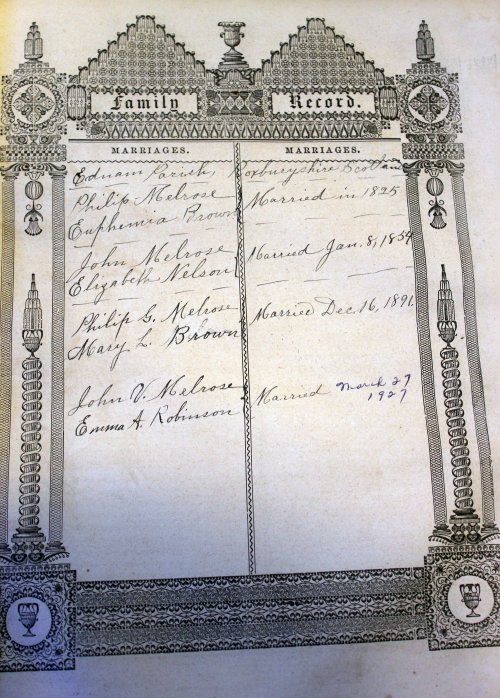 Family Record.
MARRIAGES. MARRIAGES.
Ednam Parish, Roxburyshire Scotland
Philip Melrose
Euphemia Brown
Married in 1825
John Melrose
Elizabeth Nelson
Married Jan. 8, 1854
Philip G. Melrose
Mary L. Brown
Married Dec. 16, 1891
John V. Melrose
Emma A. Robinson
Married March 27
1927